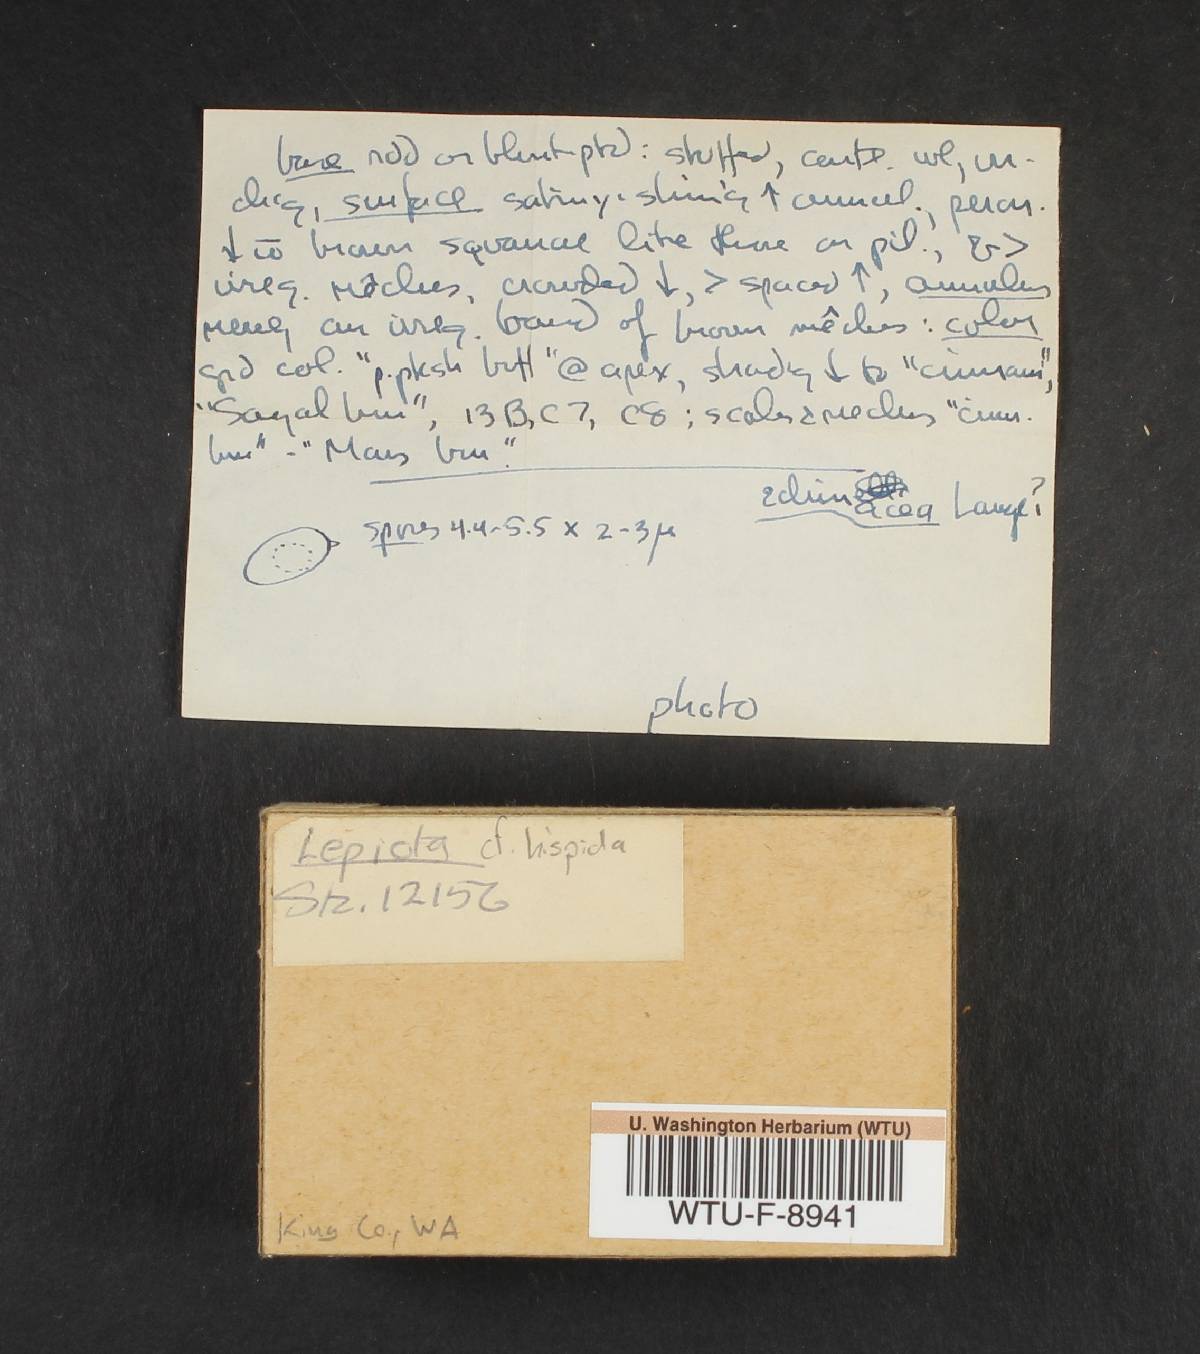 base rdd or blunt-ptd: stuffed, cent
surface satiny-shin'g ↑ annul., peron.
↓ c̄ brown squamae like those on pil., &>
irreg. mêches, crowded ↓, > spaced ↑, annulus
merely an irreg. band of brown mêches: color
grd col. "p.pksh buff" @ apex, shad'g ↓ to "cinnam",
"Sayal brn", 13 B, C7, C8; scales & mêches "cinn.
brn" - "Mars brn".
echinacea Lange?
spores 4.4-5.5 x 2-3μ
photo
Lepiota cf. hispida
Stz. 12156
King Co., WA
U. Washington Herbarium (WTU)
WTU-F-8941